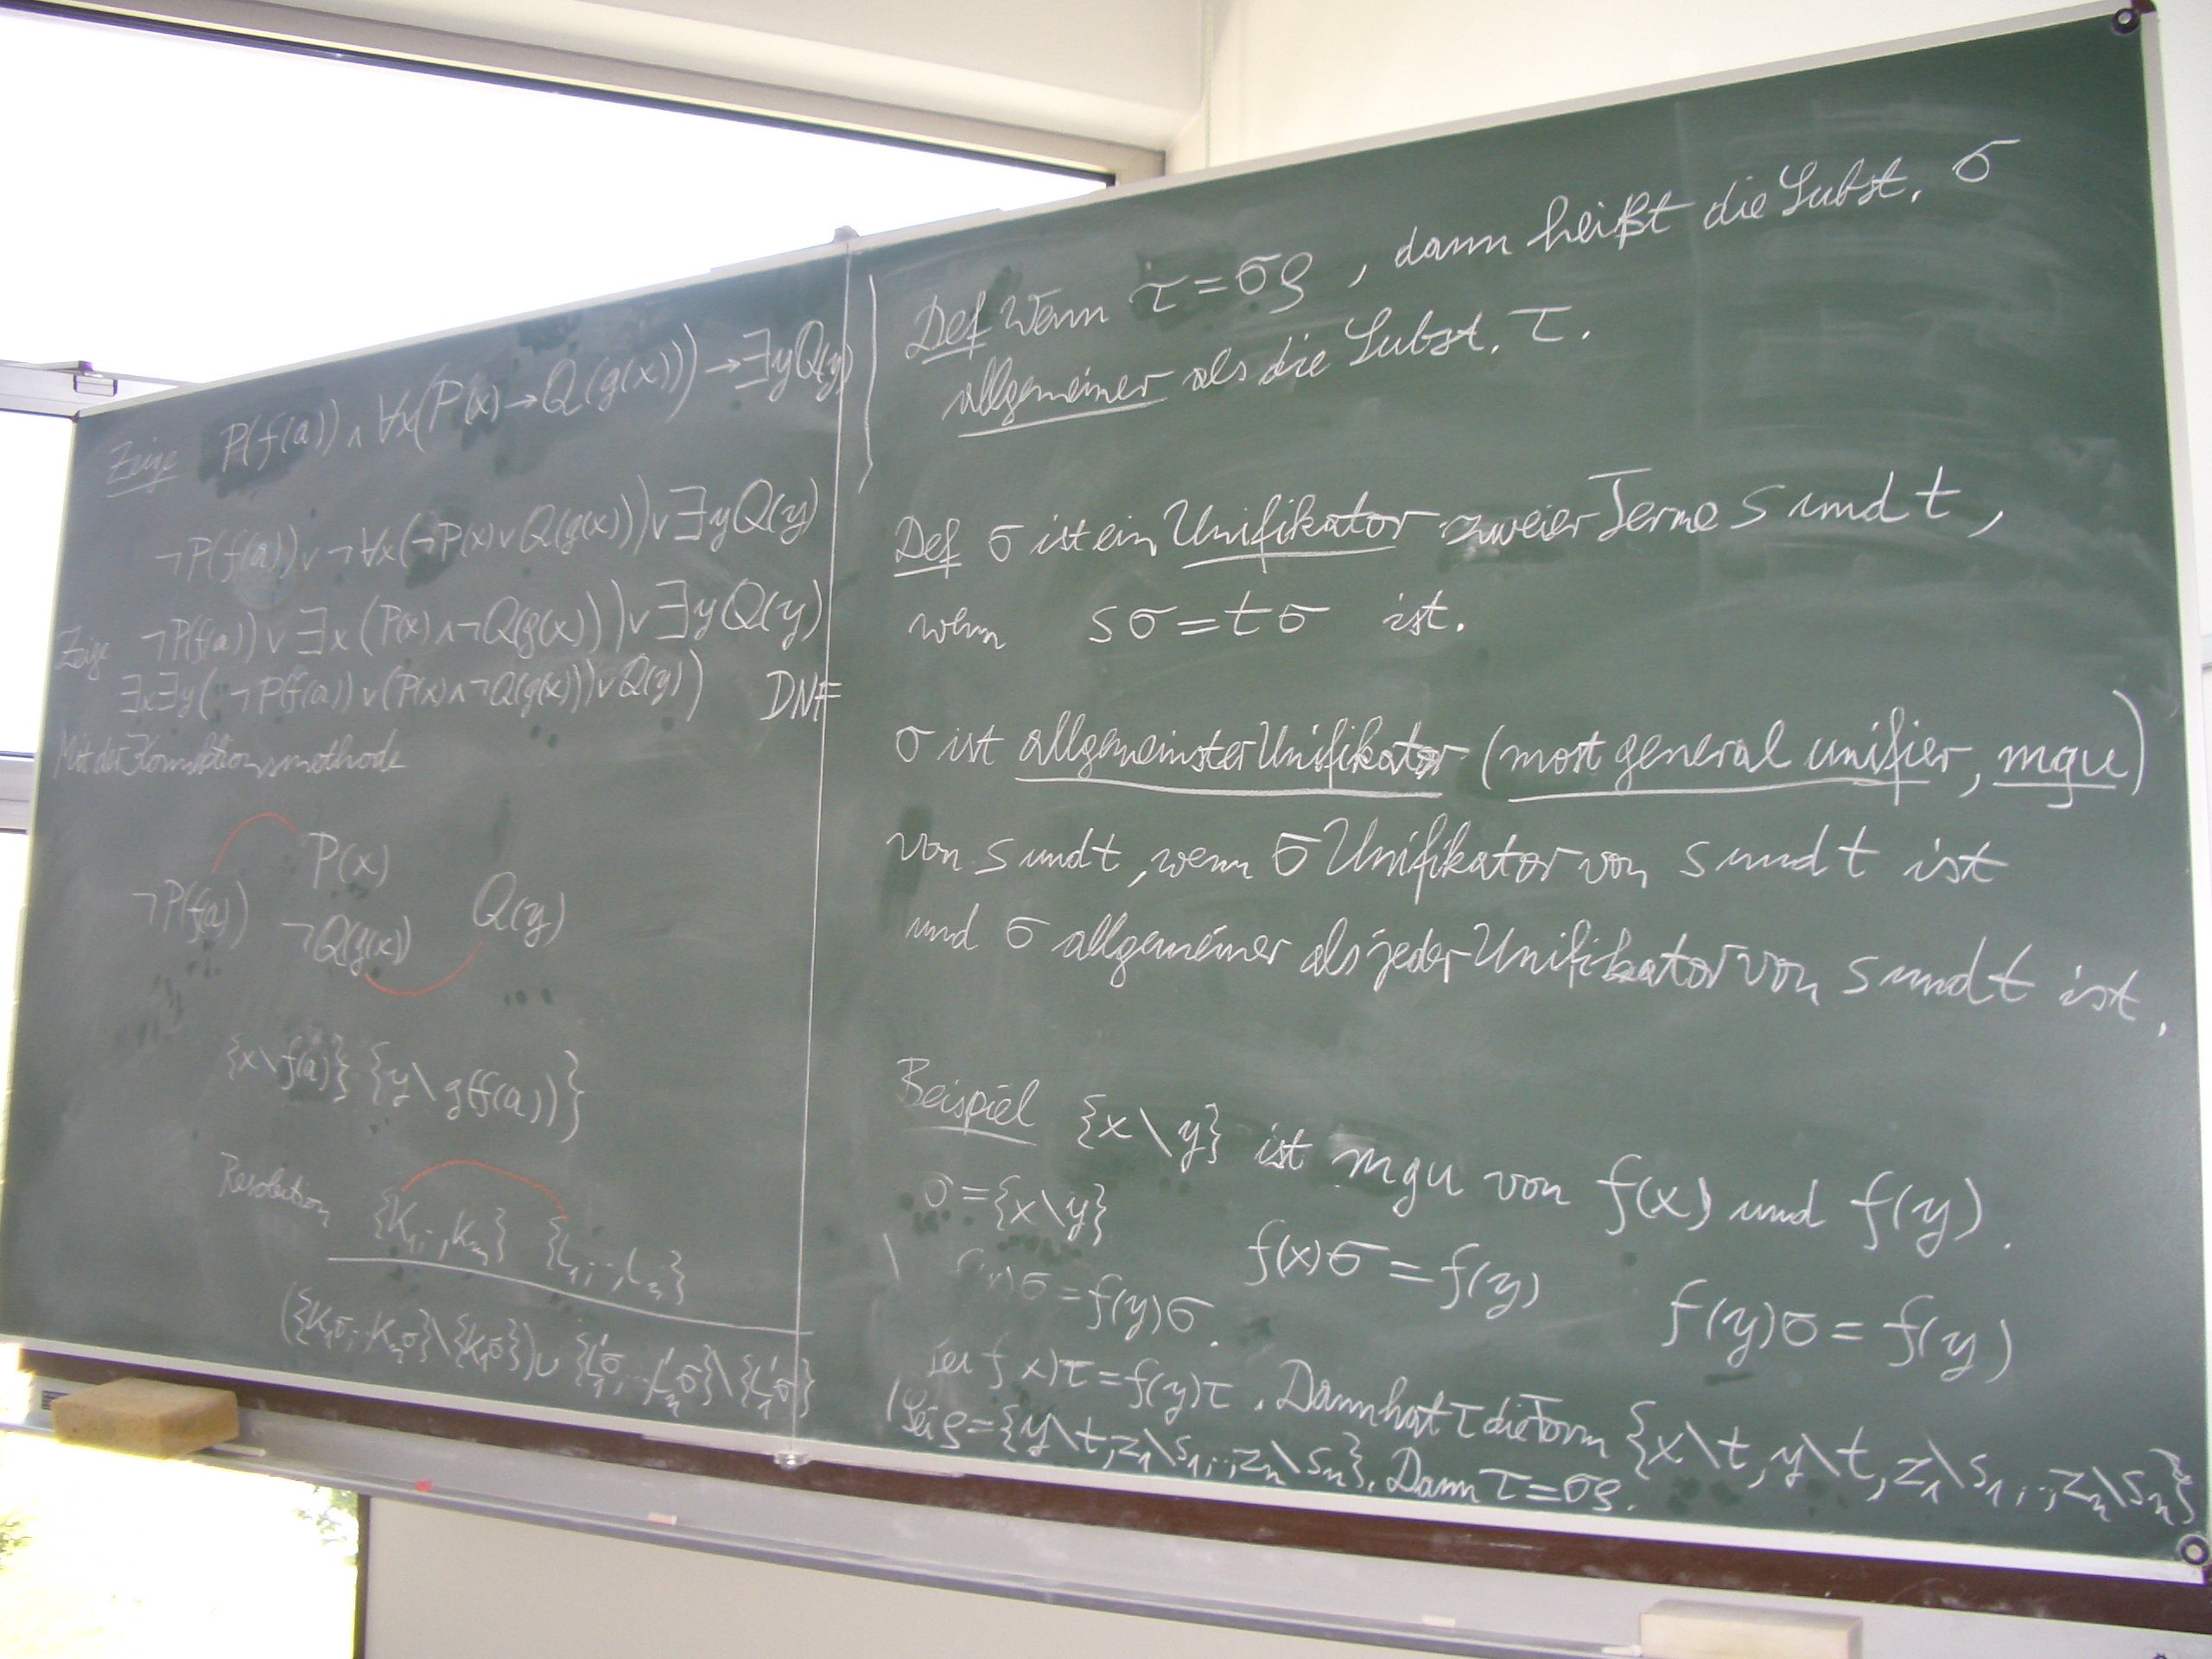 Zeige P(f(a)) ∧ ∀x(P(x)→Q(g(x))) → ∃yQ(y)
¬P(f(a)) ∨ ¬∀x(¬P(x)∨Q(g(x))) ∨ ∃yQ(y)
Zeige ¬P(f(a)) ∨ ∃x(P(x)∧¬Q(g(x))) ∨ ∃yQ(y)
∃x∃y(¬P(f(a)) ∨ (P(x)∧¬Q(g(x))) ∨ Q(y)) DNF
Mit der
P(x)
¬P(f(a)) ¬Q(g(x)) Q(y)
{x\f(a)} {y\g(f(a))}
Resolution {K₁,..,Kₘ} {L₁,..,Lₙ}
({K₁σ,..,Kₘσ}\{K₁σ}) ∪ {L₁'σ,..,Lₙ'σ}\{L₁'σ}
Def Wenn τ=σϱ, dann heißt die Subst. σ
allgemeiner als die Subst. τ.
Def σ ist ein Unifikator zweier Terme s und t,
wenn sσ=tσ ist.
σ ist allgemeinster Unifikator (most general unifier, mgu)
von s und t, wenn σ Unifikator von s und t ist
und σ allgemeiner als jeder Unifikator von s und t ist.
Beispiel {x\y} ist mgu von f(x) und f(y).
σ={x\y} f(x)σ=f(y) f(y)σ=f(y)
f(x)σ=f(y)σ.
Sei f(x)τ=f(y)τ. Dann hat τ die Form {x\t, y\t, z₁\s₁,..,zₙ\sₙ}
Sei ϱ={y\t, z₁\s₁,..,zₙ\sₙ}. Dann τ=σϱ.